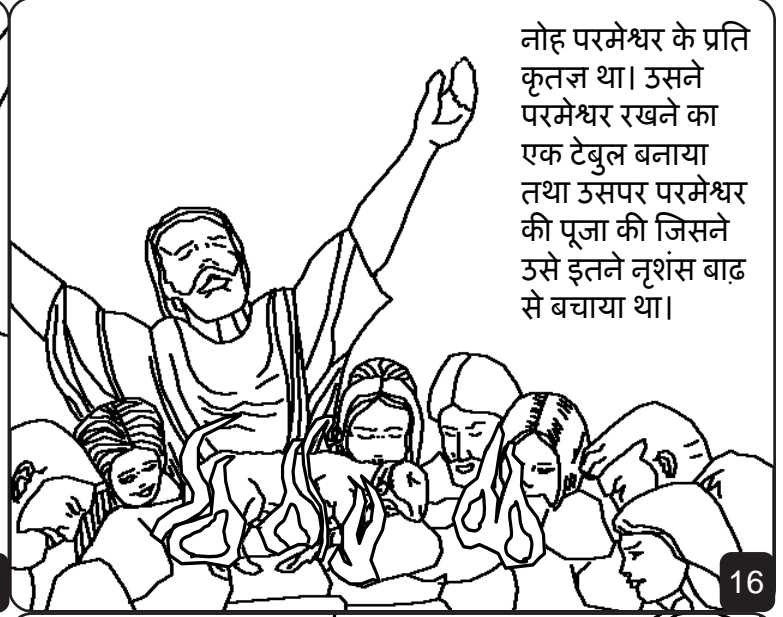 नोह परमेश्वर के प्रति
कृतज्ञ था। उसने
परमेश्वर रखने का
एक टेबुल बनाया
तथा उसपर परमेश्वर
की पूजा की जिसने
उसे इतने नृशंस बाढ़
से बचाया था।
16